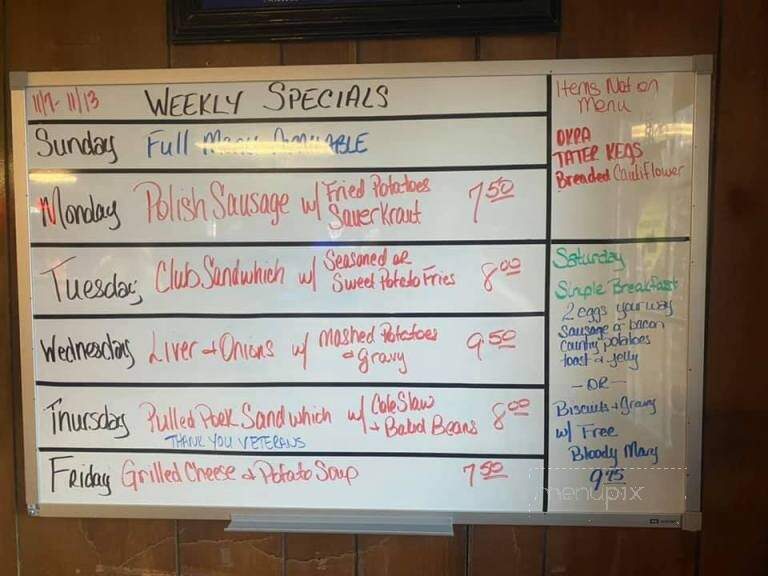 11/7-11/13 WEEKLY SPECIALS
Sunday Full Menu AVAILABLE
Monday Polish Sausage w/ Fried Potatoes
Sauerkraut 7.50
Tuesday Club Sandwhich w/ Seasoned or
Sweet Potato Fries 8.00
Wednesday Liver + Onions w/ Mashed Potatoes
+ Gravy 9.50
Thursday Pulled Pork Sandwhich w/ Cole Slaw
+ Baked Beans 8.00
THANK YOU VETERANS
Friday Grilled Cheese + Potato Soup 7.50
Items Not on
Menu
OKRA
TATER KEGS
Breaded Cauliflower
Saturday
Simple Breakfast
2 eggs your way
Sausage or bacon
country potatoes
toast + jelly
- OR -
Biscuits + Gravy
w/ Free
Bloody Mary
9.95
menupix